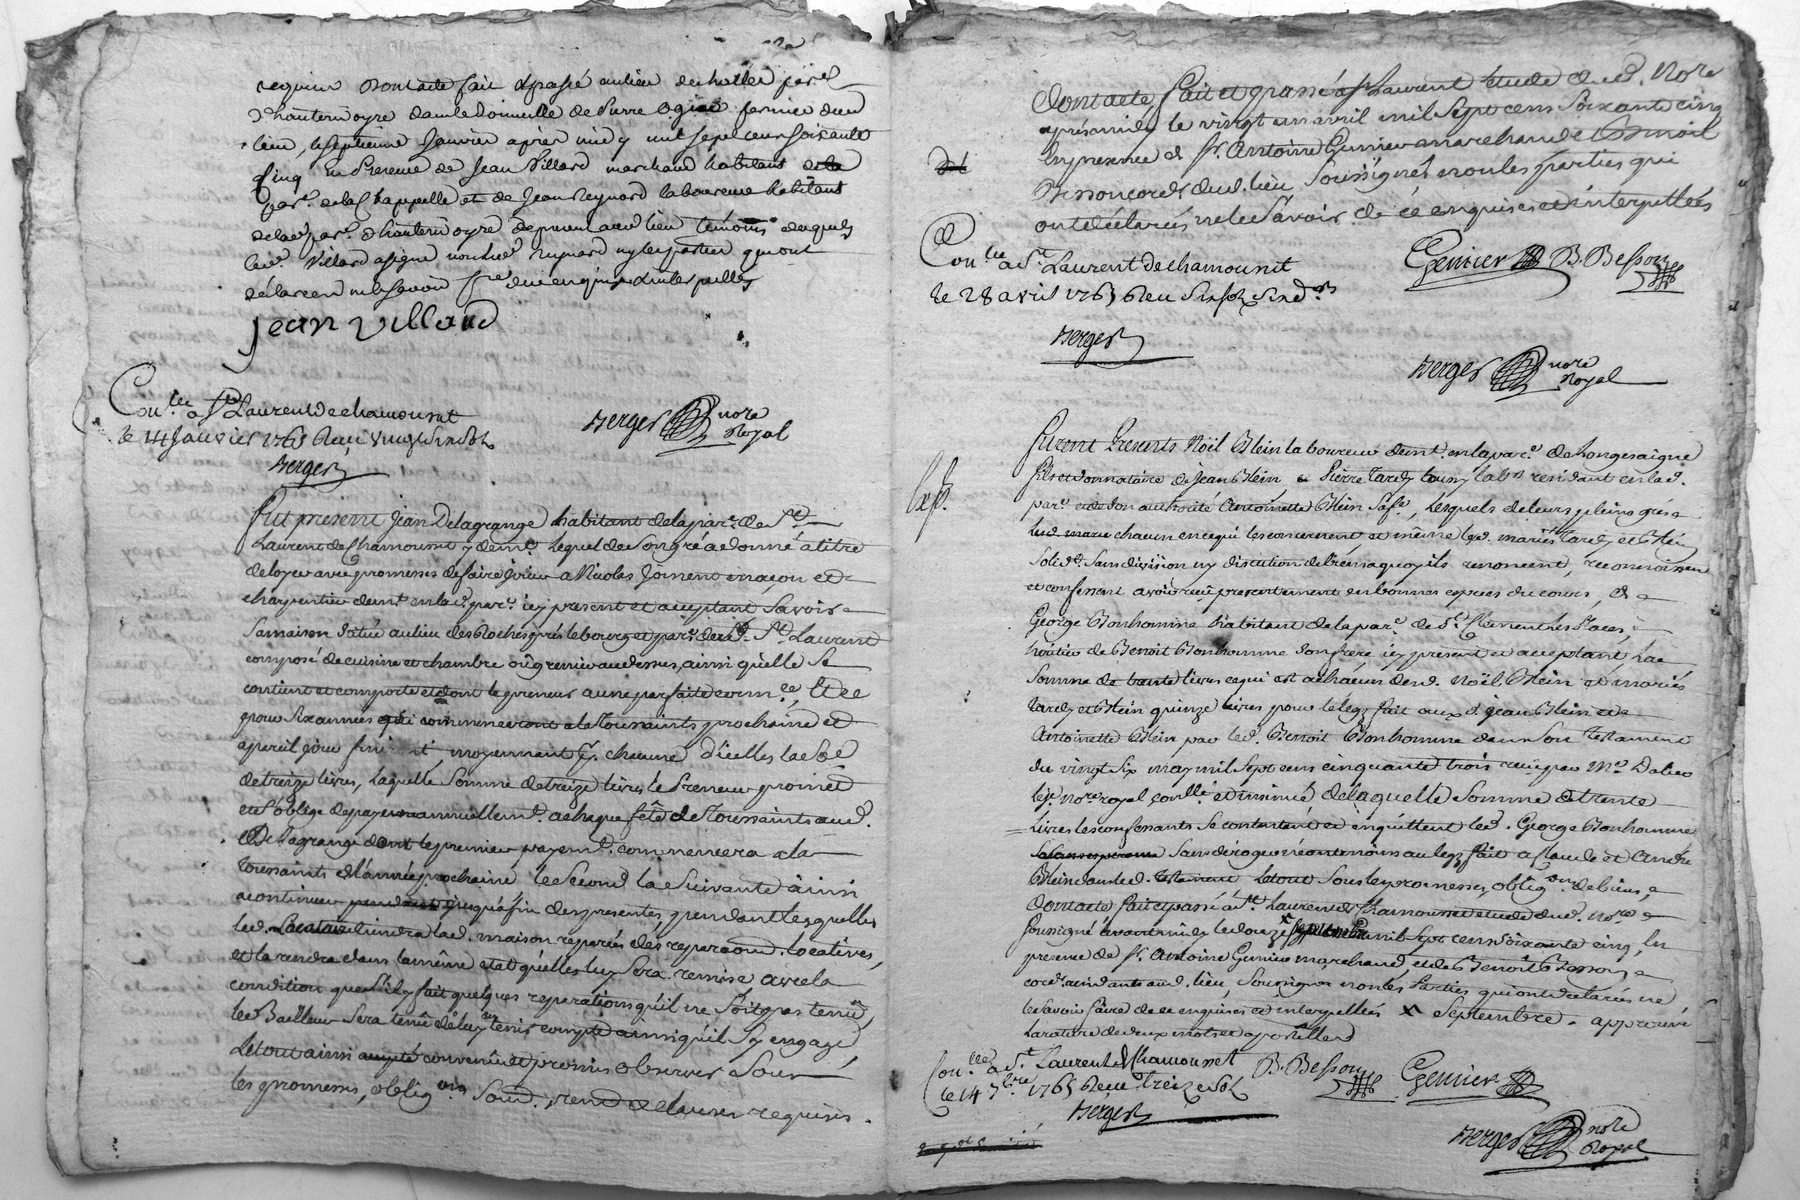 requises Dont acte fait et passé au lieu de
d'hauterivoire dans le domicille de Pierre fermier dud
lieu, le septieme Janvier après midy mil sept cens soixante
cinq en Presence de Jean Villard marchand habitant
par.e de la Chappelle et de Jean Reynard laboureur habitant
de lad par.e d'hauterivoire de present aud lieu témoins desquels
led. Villard a signé non led Reynard ny les parties qui ont
déclaré ne le savoir de ce enquis et interpellés
jean villard
Con.lée a S.t Laurent de chamousset
le 14 Janvier 1765 Reçu vingt six sols
Berger
Berger nore
Royal
Fut present Jean Delagrange habitant de la par.e de S.t
Laurent de Chamousset y demt. lequel de son gré a donné a titre
de loyer avec promesses de faire jouir a Nicolas maçon et
charpentier demt. en lad. par.e icy present et acceptant Savoir
Sa maison située au lieu des Roches près le bourg et par.e dud. S.t Laurent
composé de cuisine et chambre où grenier au dessus, ainsi qu'elle se
contient et comporte et dont le preneur a une parfaite conn.ce, Et ce
pour six années qui commenceront a la Toussaints prochaine et
a pareil jour finiront, moyennant p.r chacune d'icelles la so.e
de treize livres, laquelle somme de treize livres le Preneur promet
et s'oblige de payer annuellemt. a chaque fête de Toussaints aud.
Delagrange dont le premier payemt. commencera a la
Toussaints de l'année prochaine le second la suivante ainsi
a continuer jusqu'à fin des presentes, pendant lesquelles
led. Locataire tiendra lad. maison reparée des reparaôns locatives,
et la rendra dans la même etat qu'elle luy sera remise avec la
condition que s'il y fait quelques reparations qu'il ne soit pas tenû,
led Bailleur sera tenû de luy en tenir compte ainsi qu'il s'y engage,
Le tout ainsi convenû et promis observer sous
les promesses, oblig.ons soum., renon et clauses requises.
Dont acte, fait et passé a S.t Laurent étude dud. Nore
après midy le vingt un avril mil sept cens soixante cinq
En presence de S.r Antoine Genier marchand et Benoit
Besson cord.r dud. lieu soussignés non les parties qui
ont déclarés ne le savoir de ce enquises et interpellées
Con.lée a S.t Laurent de chamousset
le 28 avril 1765 Reçu six sols six d.rs
Genier B. Besson
Berger
Berger nore
Royal
Exp.
Furent Presents Noël Blein laboureur demt. en la par.e de Longesaigne
fils et donnataire de Jean Blein & Pierre Tardy aussy lab.r residant en lad.
par.e et de son authorité Antoinette Blein sa fe., lesquels de leurs pleins grés
chacun en ce qui les concernent et même led. mariés Tardy et Blein
solid.t sans division ny discution de biens a quoy ils renoncent, reconnoissent
et confessent avoir reçu presentement en bonnes especes du cours, de
George Bonhomme habitant de la par.e de S.t Clement les Places,
heritier de Benoit Bonhomme son frere icy present et acceptant La
somme de trente livres ce qui est a chacun desd. Noël Blein et mariés
Tardy et Blein quinze livres pour le legs fait auxd Jean Blein et
Antoinette Blein par led. Benoit Bonhomme dans son testament
du vingt six may mil sept cens cinquante trois reçu par M.e
nore royal, con.llé et insinué, de laquelle somme de trente
Livres les confessants se contentent et en quittent led. George Bonhomme
sans deroger neantmoins au legs fait a Claude et André
Blein dans led. testament Le tout sous les promesses, oblig.ons de biens, &
Dont acte fait et passé a S.t Laurent de Chamousset etude dud. Nore
soussigné avant midy le douze × mil sept cens soixante cinq, En
presence de S.r Antoine Genier marchand, et de Benoit Besson
cord.r residants aud. lieu, soussignés non les Parties qui ont declarés ne
le savoir faire de ce enquises et interpellés × septembre. approuvé
La rature de deux mots et apostille
Con.lée a S.t Laurent de Chamousset
le 14 7bre 1765 Reçu treize sols
B. Besson Genier
Berger
Berger nore
Royal